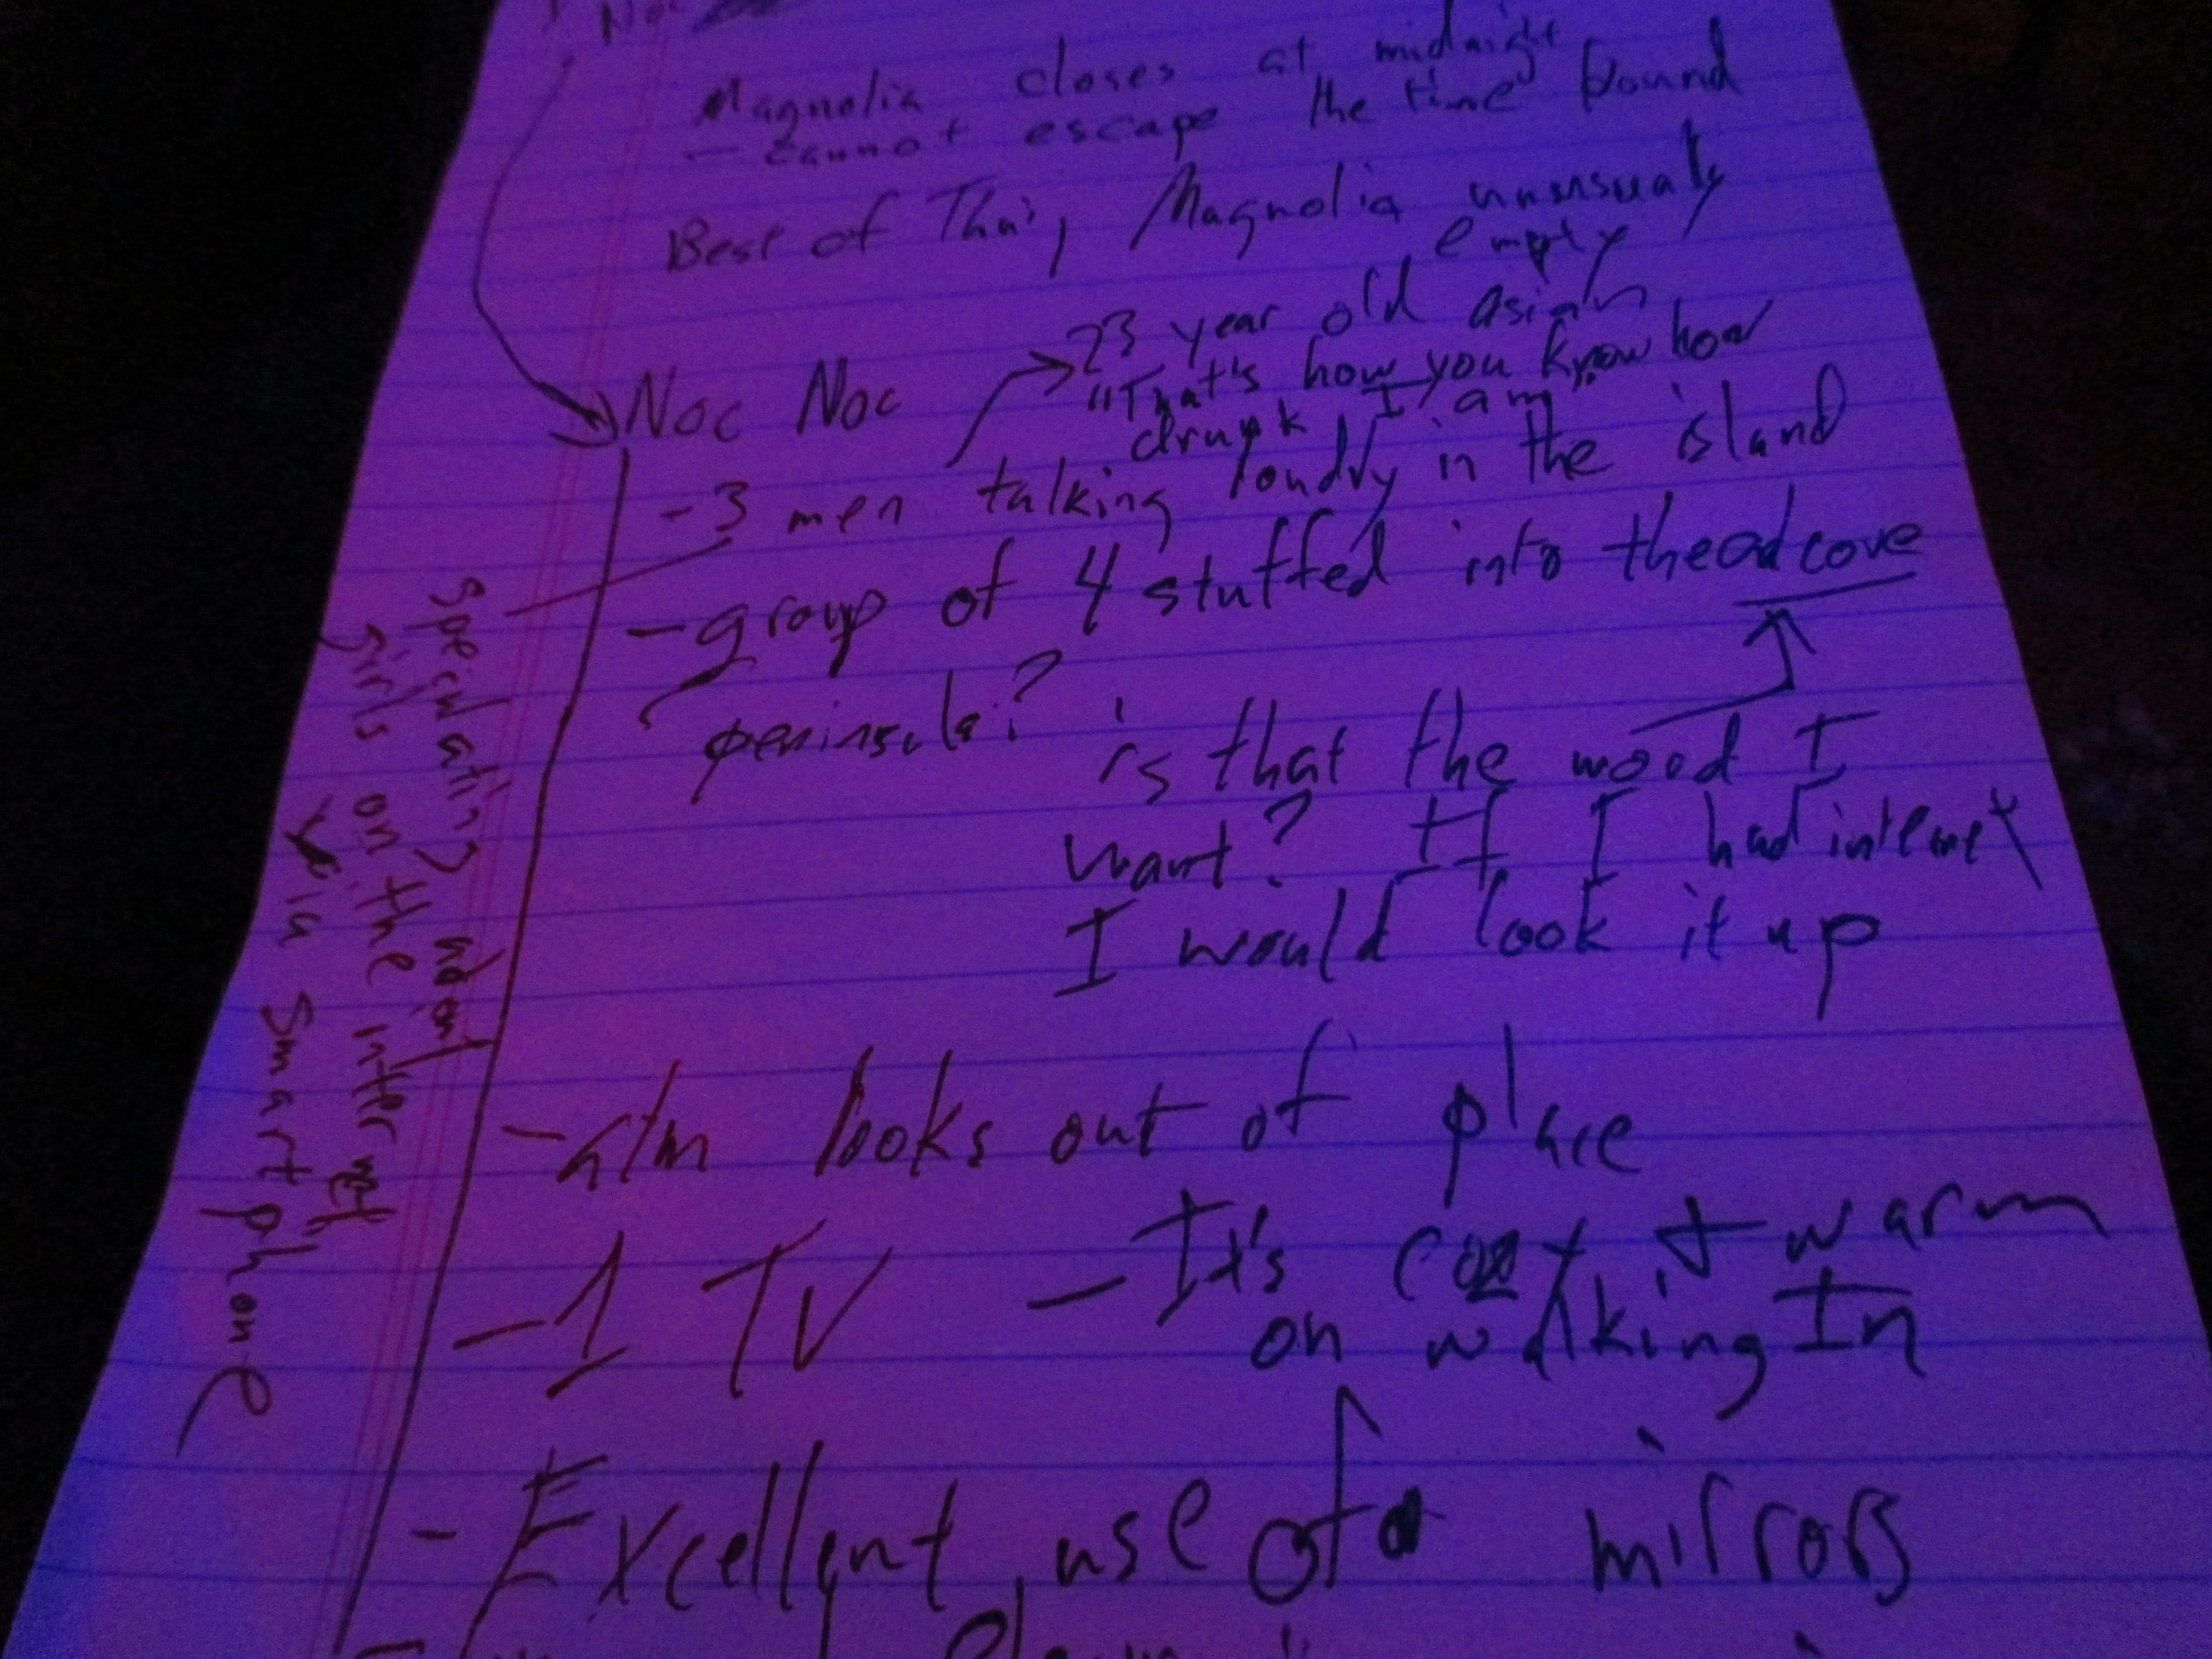 Noc
Magnolia closes at midnight
- cannot escape the time bound
Best of Thai, Magnolia unusualy
empty
Noc Noc
23 year old asian
"That's how you know how
drunk I am"
- 3 men talking loudly in the island
- group of 4 stuffed into the adcove
peninsula?
is that the word I
want? If I had internet
I would look it up
speculating about
girls on the internet
via smart phone
- atm looks out of place
- 1 TV
- It's cozy & warm
on walking In
- Excellent use of mirrors